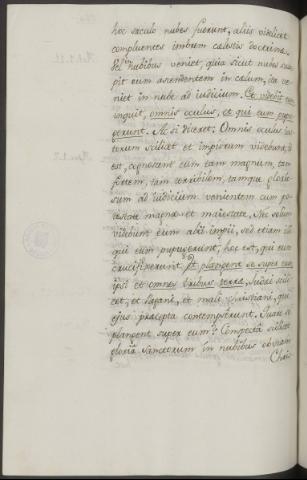 hoc sæculo nubes fuerunt, aliis videlicet
compluentes imbrem cælestis doctrinæ.
Vel in nubibus veniet, quia sicut nubes susce-
pit eum ascendentem in cælum, ita ve-
niet in nube ad iudicium. Et videbit eum,
inquit, omnis oculus, et qui eum pupu-
gerunt. Ac si diceret: Omnis oculus Iu-
storum scilicet et impiorum videbunt, id
est, cognoscent eum tam magnum, tam
fortem, tam terribilem, tamque glorio-
sum ad iudicium venientem cum po-
testate magna et maiestate. Nec solum
videbunt eum alii impii, sed etiam illi
qui eum pupugerunt, hoc est, qui eum
crucifixerunt. Et plangent se super eum
ipsi et omnes tribus terræ, Iudæi scili-
cet, et Pagani, et mali Christiani, qui
ejus præcepta contempserunt. Quare se
plangent super eum? Conspecta scilicet
gloria Sanctorum in nubibus obviam
Chri-